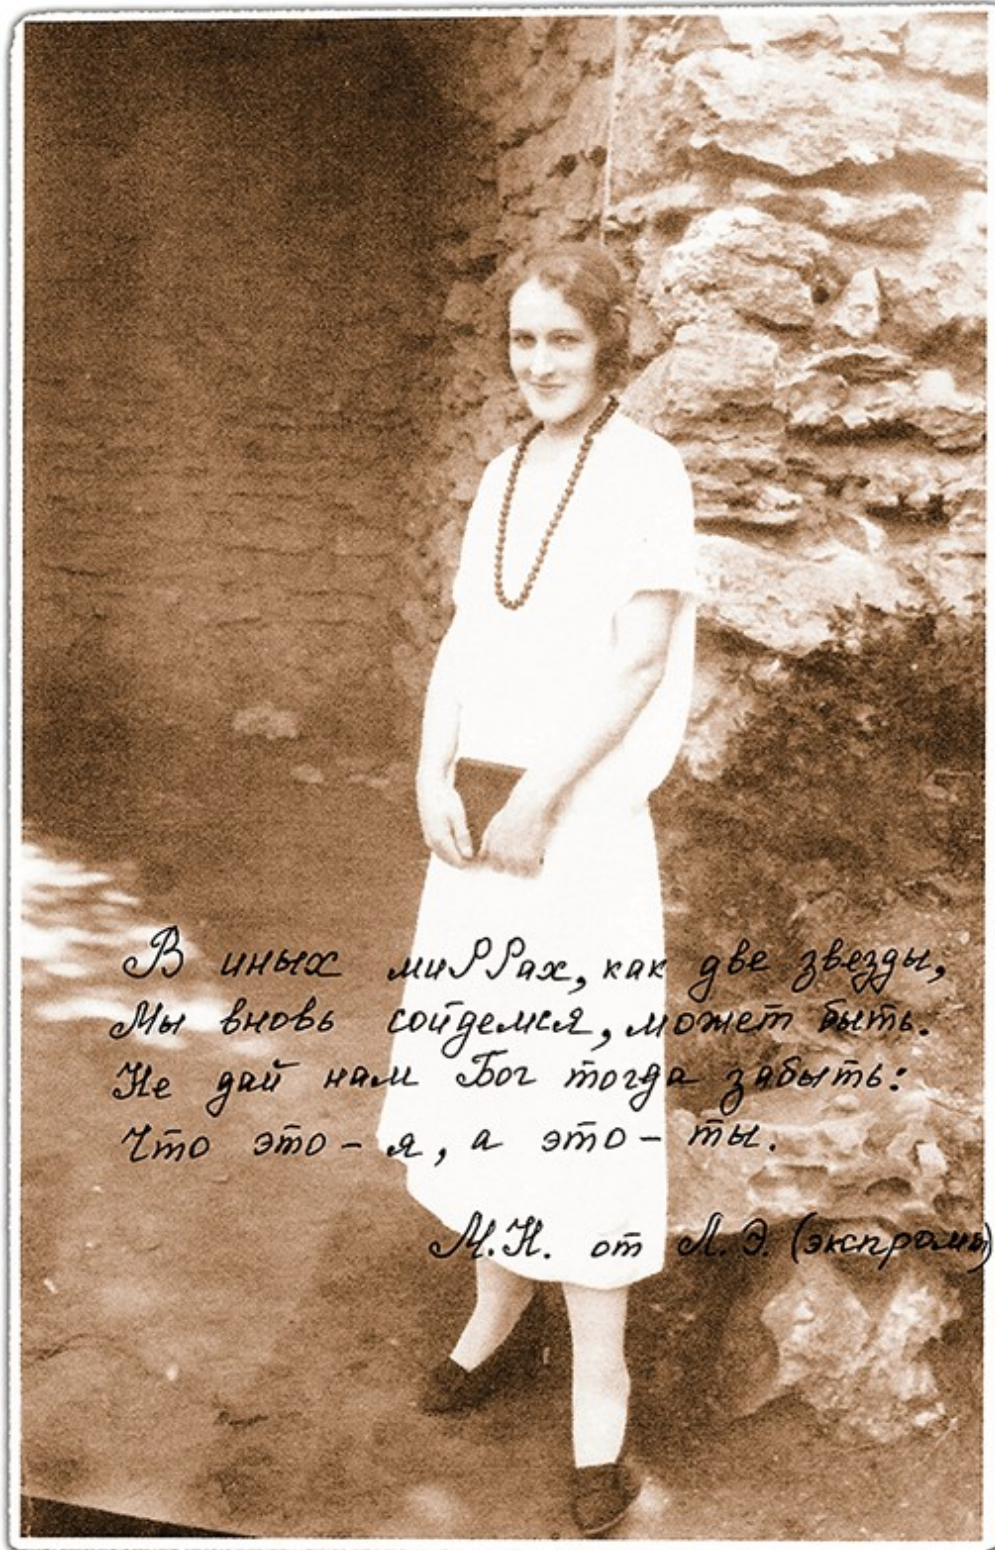 В иных миРРах, как две звезды,
Мы вновь сойдемся, может быть.
Не дай нам Бог тогда забыть:
Что это - я, а это - ты.
М.Н. от Л.Э. (экспромт)